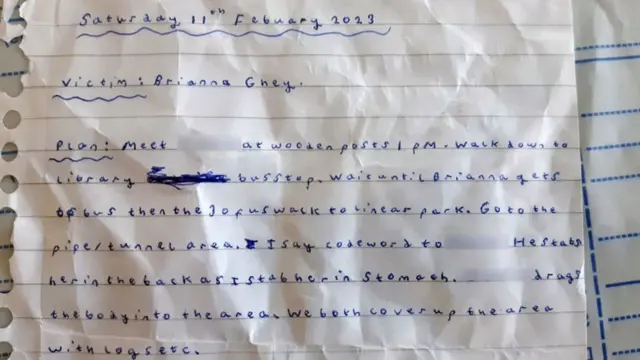 Saturday 11th Febuary 2023
Victim: Brianna Ghey.
Plan: Meet at wooden posts 1 PM. Walk down to
library bus stop. Wait until Brianna gets
off bus then the 3 of us walk to linear park. Go to the
pipe/tunnel area. I say codeword to He stabs
her in the back as I stab her in stomach. drags
the body into the area. We both cover up the area
with logs etc.